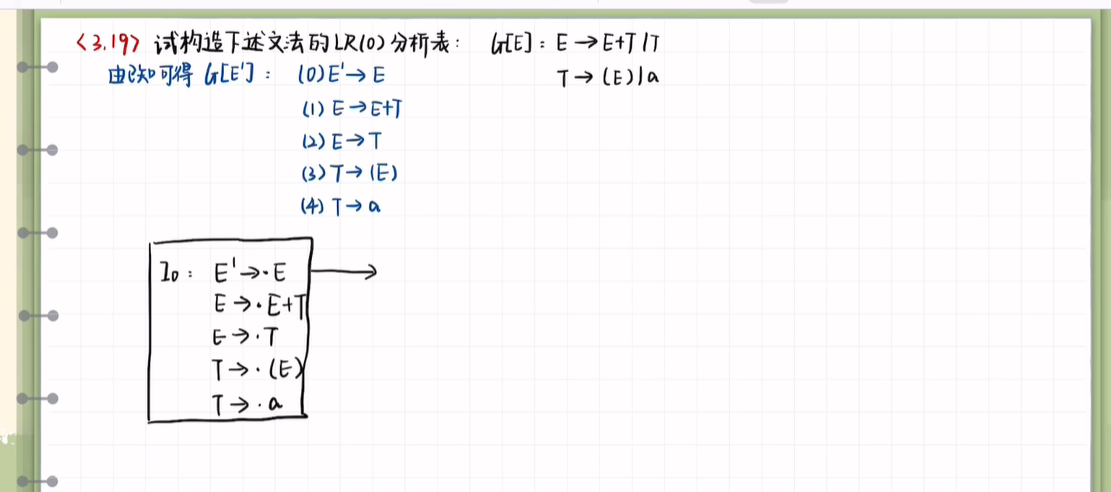 <3.19> 试构造下述文法的LR(0)分析表: G[E]: E→E+T|T
T→(E)|a
由已知可得 G[E']: (0) E'→E
(1) E→E+T
(2) E→T
(3) T→(E)
(4) T→a
I0: E'→·E
E→·E+T
E→·T
T→·(E)
T→·a